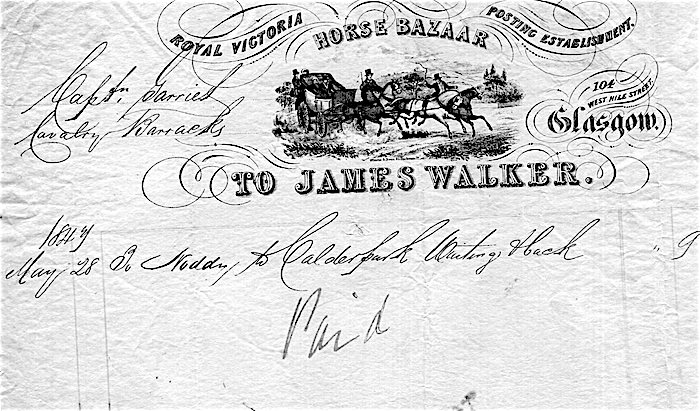 ROYAL VICTORIA HORSE BAZAAR POSTING ESTABLISHMENT.
104
WEST NILE STREET.
Glasgow.
Captn.
Cavalry Barracks
TO JAMES WALKER.
1847
May 28 To Noddy to Calderpark Waiting & back " 9
Paid